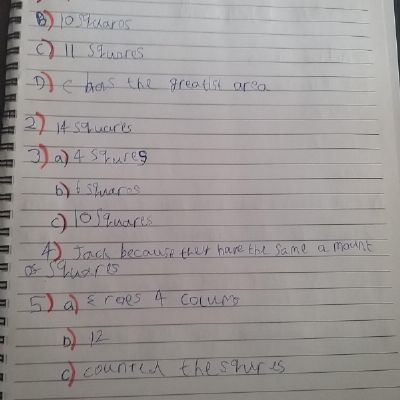 B) 10 squares
C) 11 Squares
D) C has the greatist area
2) 14 squares
3) a) 4 squres
b) 6 squares
c) 10 Squares
4) Jack because they have the same a mount
of Squares
5) a) 4
b) 12
c) counted the squres